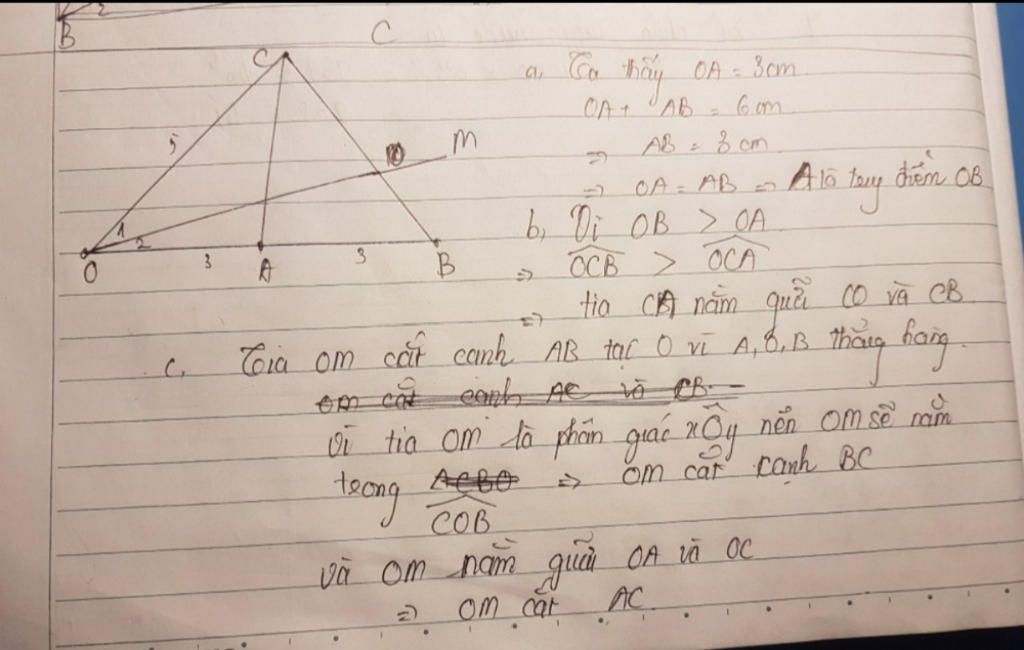 2
B
C
C
5
1
2
O
3
A
3
B
M
a, Ta thấy OA = 3cm
OA + AB = 6cm
=> AB = 3cm
=> OA = AB => A là tuy điểm OB
b, Vì OB > OA
=> OCB > OCA
=> tia CA nằm giữa CO và CB
c, Tia OM cắt cạnh AB tại O vì A, O, B thẳng hàng.
OM cắt cạnh AC và CB
Vì tia OM là phân giác xOy nên OM sẽ nằm
trong ACBO => OM cắt cạnh BC
COB
Và OM nằm giữa OA và OC
=> OM cắt AC